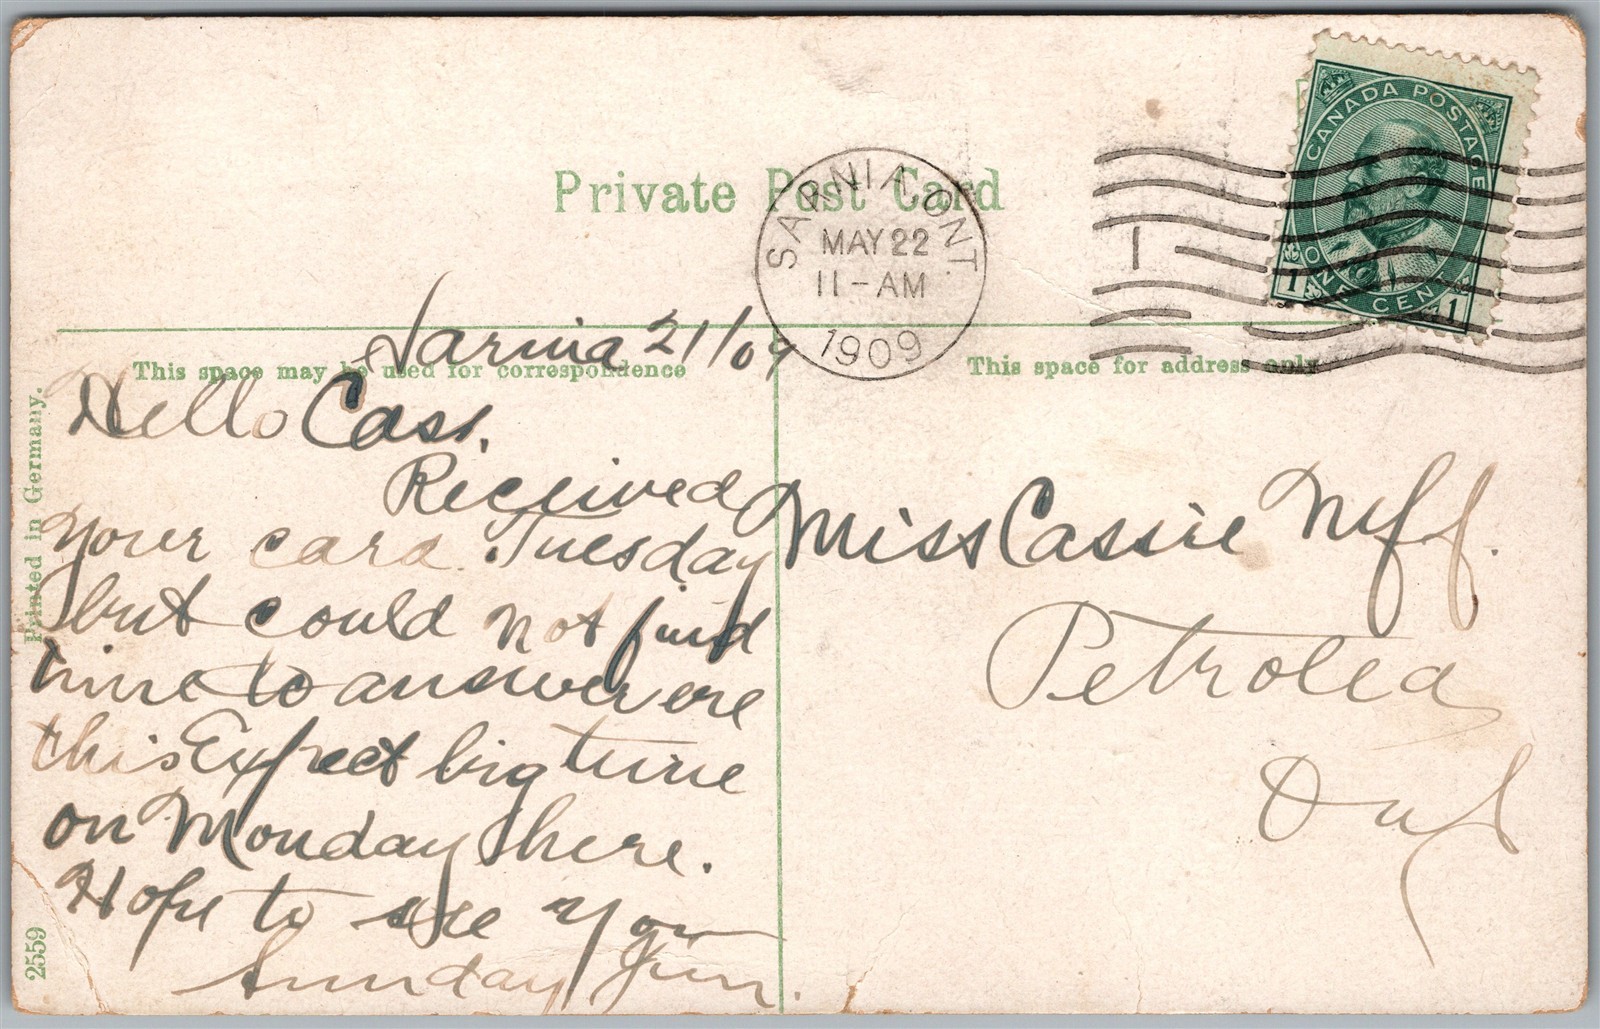 Private Post Card
SARNIA, ONT.
MAY 22
11-AM
1909
1
CANADA POSTAGE
ONE CENT
1 1
This space may be used for correspondence
This space for address only
Printed in Germany.
2559
Sarnia 21/09
Hello Cass.
Received
your card Tuesday
but could not find
time to answer ere
this Expect big time
on Monday here.
Hope to see you
Sunday Jim.
Miss Cassie Neff.
Petrolea
Ont